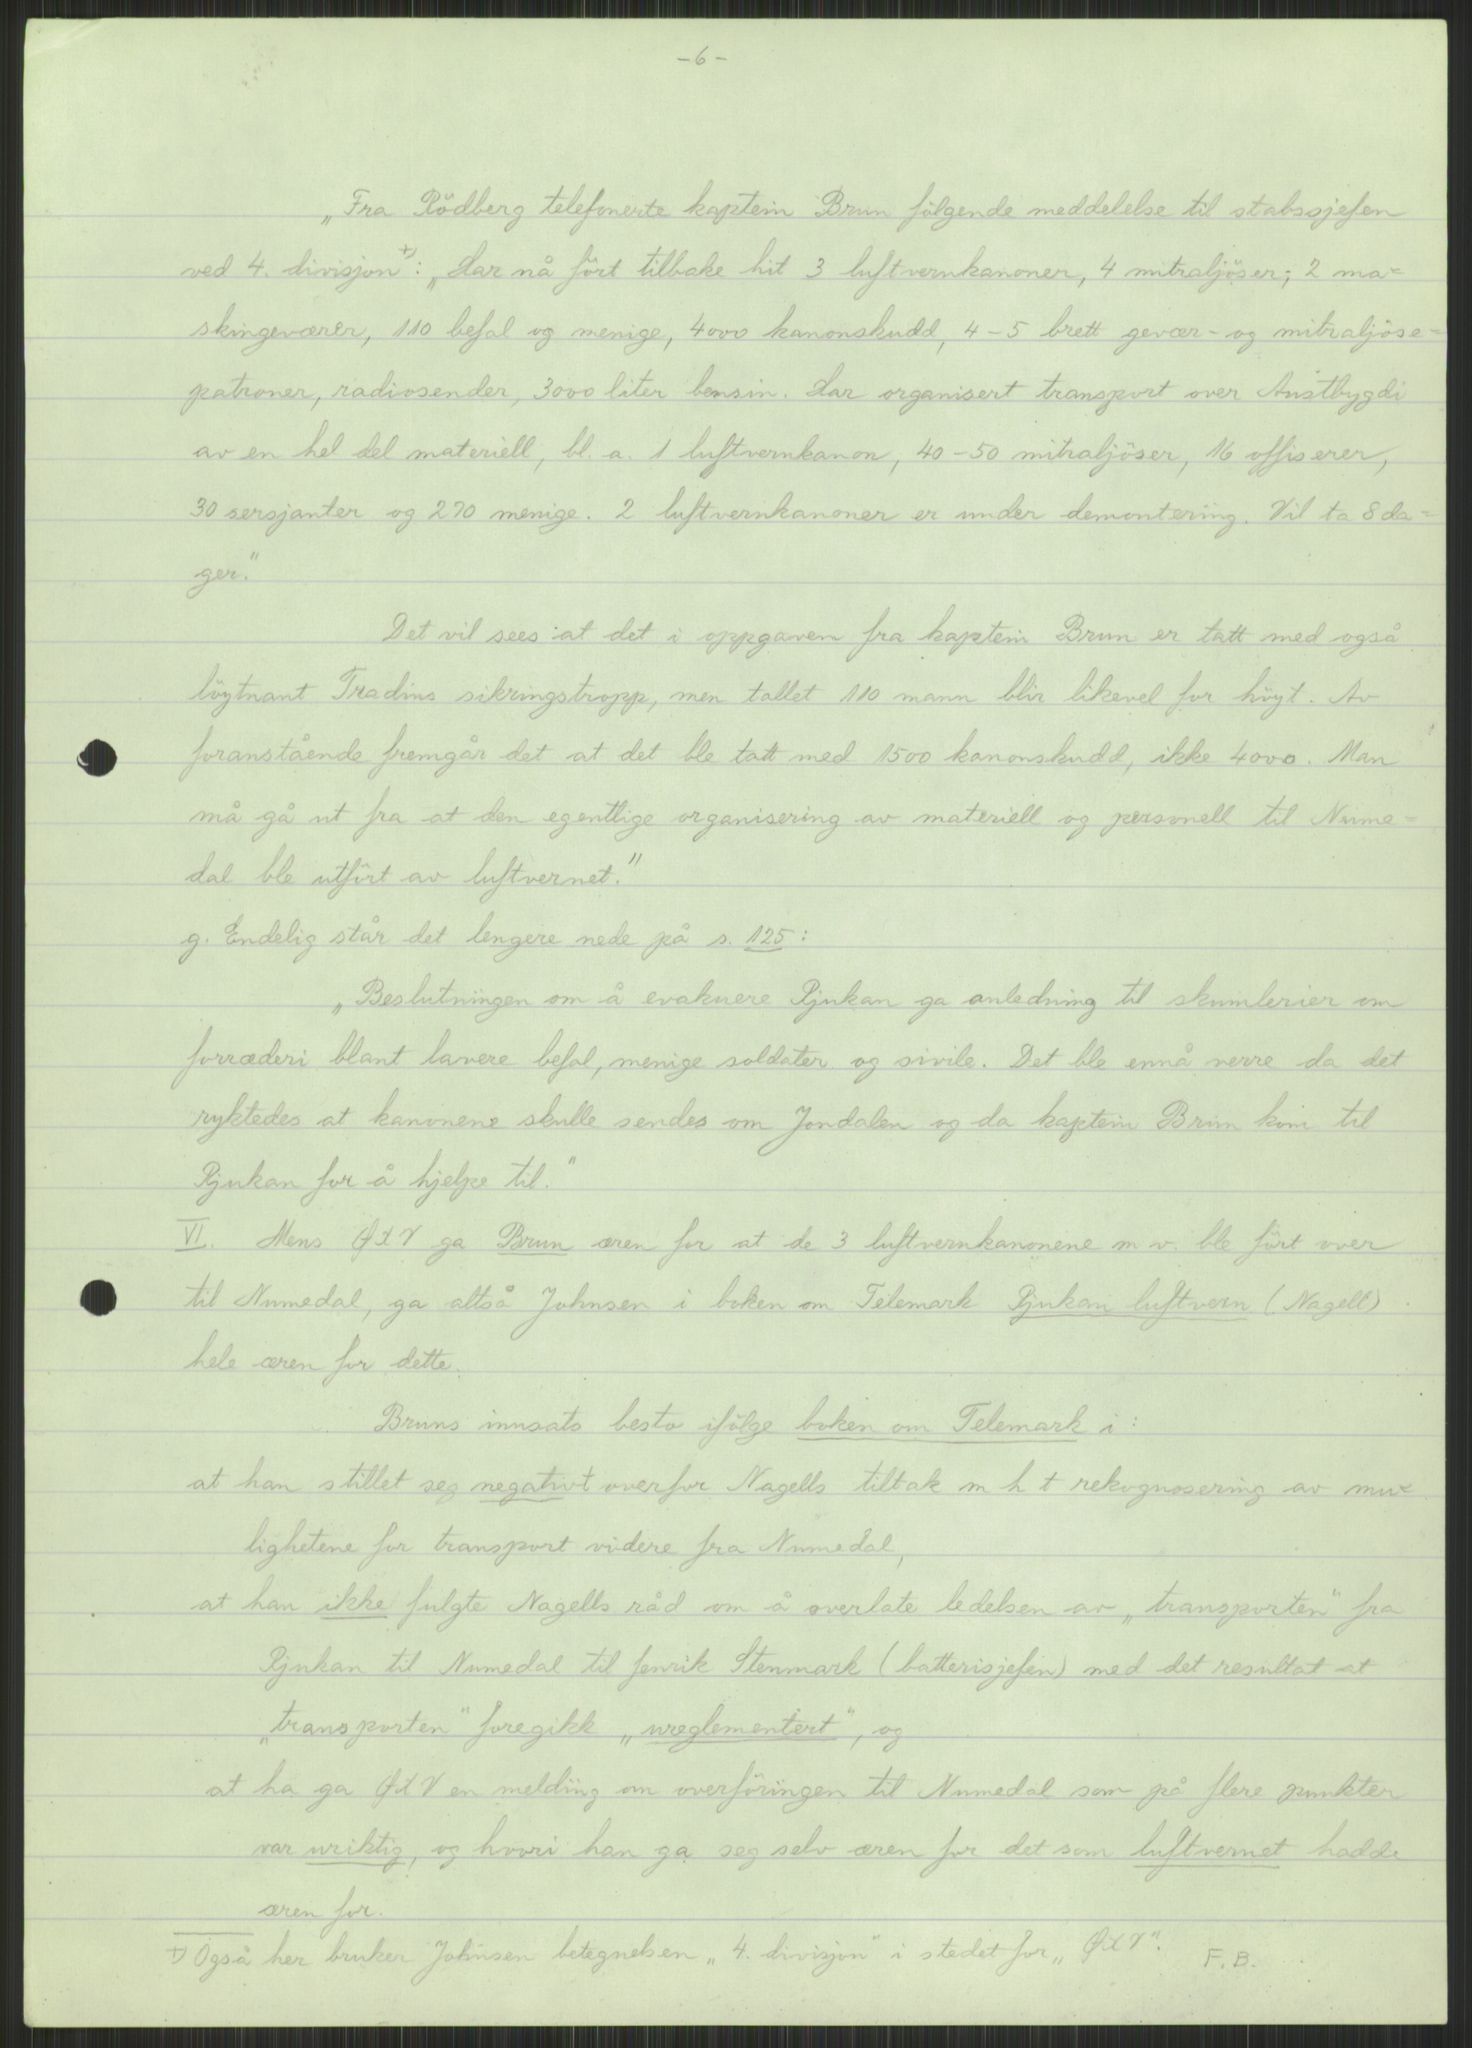 -6-
„Fra Rödberg telefonerte kaptein Brun følgende meddelelse til stabssjefen
ved 4. divisjon +) : „Har nå fört tilbake hit 3 luftvernkanoner, 4 mitraljöser; 2 ma-
skingeværer, 110 befal og menige, 4000 kanonskudd, 4-5 brett gevær- og mitraljöse-
patroner, radiosender, 3000 liter bensin. Har organisert transport over Austbygdi
av en hel del materiell, bl. a. 1 luftvernkanon, 40-50 mitraljöser, 16 offiserer,
30 sersjanter og 270 menige. 2 luftvernkanoner er under demontering. Vil ta 8 da-
ger."
Det vil sees at det i oppgaven fra kaptein Brun er tatt med også
löytnant Tradins sikringstropp, men tallet 110 mann blir likevel for höyt. Av
foranstående fremgår det at det ble tatt med 1500 kanonskudd, ikke 4000. Man
må gå ut fra at den egentlige organisering av materiell og personell til Nume-
dal ble utfört av luftvernet."
g. Endelig står det lengere nede på s. 125:
„Beslutningen om å evakuere Rjukan ga anledning til skumlerier om
forræderi blant lavere befal, menige soldater og sivile. Det ble ennå verre da det
ryktedes at kanonene skulle sendes om Jondalen og da kaptein Brun kom til
Rjukan for å hjelpe til."
VI. Mens ØLV ga Brun æren for at de 3 luftvernkanonene m v. ble fört over
til Numedal, ga altså Johnsen i boken om Telemark Rjukan luftvern (Nagell)
hele æren for dette.
Bruns innsats besto ifölge boken om Telemark i:
at han stillet seg negativt overfor Nagells tiltak m h t rekognosering av mu-
lighetene for transport videre fra Numedal,
at han ikke fulgte Nagells råd om å overlate ledelsen av „transporten" fra
Rjukan til Numedal til fenrik Stenmark (batterisjefen) med det resultat at
„transporten" foregikk „ureglementert", og
at ha ga ØLV en melding om overföringen til Numedal som på flere punkter
var uriktig, og hvori han ga seg selv æren for det som luftvernet hadde
æren for.
+) Også her bruker Johnsen betegnelsen „4. divisjon" i stedet for „ØLV". F. B.